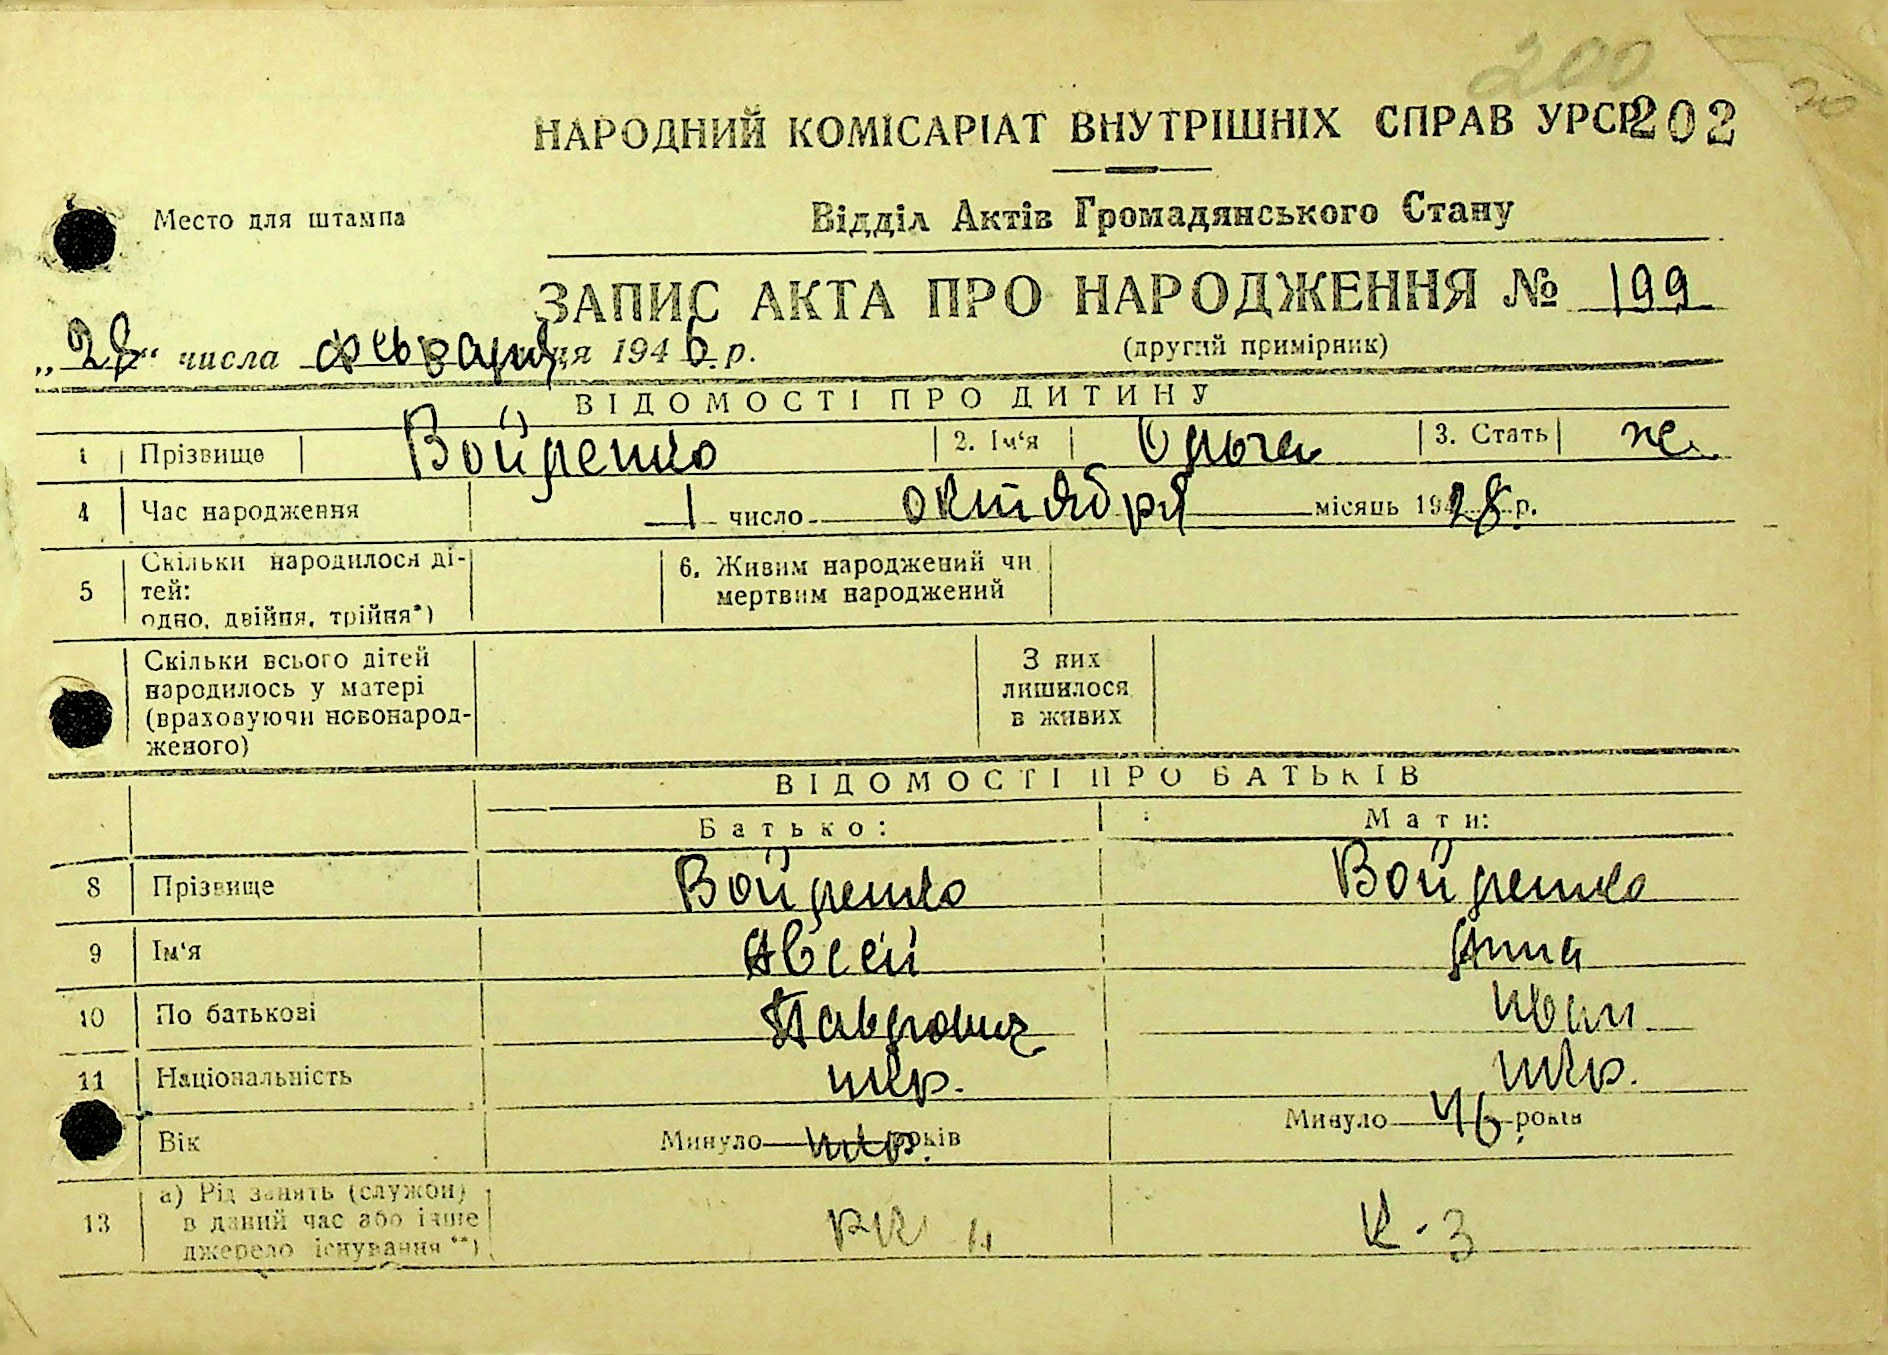 200
20
НАРОДНИЙ КОМІСАРІАТ ВНУТРІШНІХ СПРАВ УРСР 202
Место для штампа
Відділ Актів Громадянського Стану
ЗАПИС АКТА ПРО НАРОДЖЕННЯ № 199
„28“ числа февраля ця 1946 р.
(другий примірник)
ВІДОМОСТІ ПРО ДИТИНУ
1 Прізвище Войденко 2. Ім‘я Ольга 3. Стать ж.
4 Час народження 1 число октября місяць 1928 р.
5 Скільки народилося ді-
тей:
одно, двійня, трійня*)
6. Живим народжений чи
мертвим народжений
Скільки всього дітей
народилось у матері
(враховуючи новонарод-
женого)
З них
лишилося
в живих
ВІДОМОСТІ ПРО БАТЬКІВ
Батько: Мати:
8 Прізвище Войденко Войденко
9 Ім‘я Авсей Анна
10 По батькові Павлович Иван
11 Національність укр. укр.
Вік Минуло укр. років Минуло 46 років
13 а) Рід занять (служби)
в даний час або інше
джерело існування**)
РК К-З